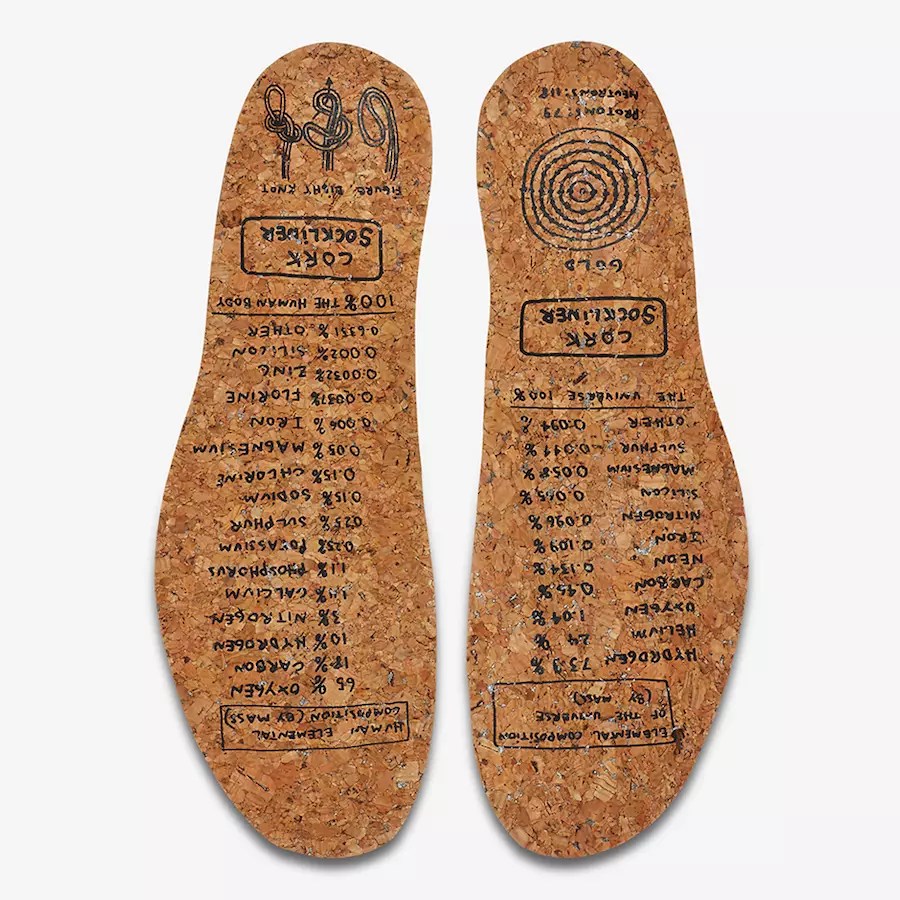 ELEMENTAL COMPOSITION
OF THE UNIVERSE
(BY MASS)
HYDROGEN 73.9 %
HELIUM 24 %
OXYGEN 1.04 %
CARBON 0.45 %
NEON 0.134 %
IRON 0.109 %
NITROGEN 0.096 %
SILICON 0.065 %
MAGNESIUM 0.058 %
SULPHUR %
OTHER 0.094 %
THE UNIVERSE 100 %
CORK
SOCKLINER
GOLD
PROTONS:79
NEUTRONS:118
HUMAN ELEMENTAL
COMPOSITION (BY MASS)
65 % OXYGEN
18 % CARBON
10 % HYDROGEN
3% NITROGEN
CALCIUM
1.1% PHOSPHORUS
0.25% POTASSIUM
0.25% SULPHUR
0.15% SODIUM
0.15% CHLORINE
0.05% MAGNESIUM
0.006% IRON
0.0037% FLORINE
0.0032% ZINC
0.002% SILICON
0.6351% OTHER
100% THE HUMAN BODY
CORK
SOCKLINER
FIGURE EIGHT KNOT